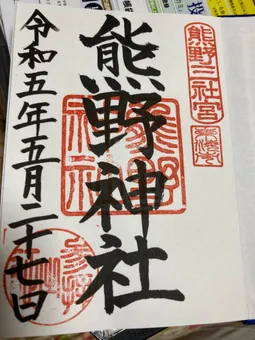 熊野三社宮
熊野神社
熊野
神社
令和五年五月二十七日
参拝